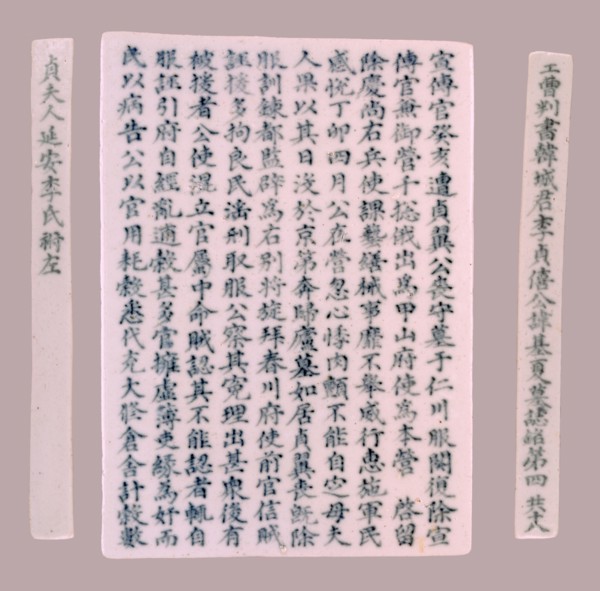 工曹判書韓城君李貞僖公諱基夏墓誌銘第四 共十八
宣傳官癸亥遭貞翼公喪守墓于仁川服闋復除宣
傳官兼御營千摠俄出爲甲山府使爲本營 啓留
除慶尚右兵使課藝繕械事靡不擧威行惠施軍民
感悅丁卯四月公在營忽心悸肉顫不能自定母夫
人果以其日沒於京第奔歸廬墓如居貞翼喪旣除
服訓鍊都監辟爲右別將旋拜春川府使前官信賊
誣援多拘良民滛刑取服公察其寃理出甚衆後有
被援者公使混立官屬中命賊認其不能認者輒自
服誣引府自經亂逋穀甚多官擁虛簿吏緣爲奸而
民以病告公以官用耗穀悉代充大修倉舍計穀數
貞夫人延安李氏祔左